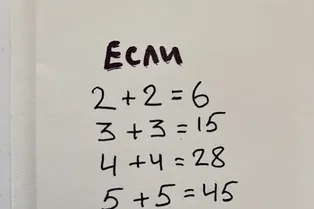 Если
2+2=6
3+3=15
4+4=28
5+5=45